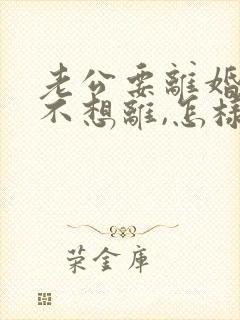 老公要離婚
不想離,怎樣
荣金庫